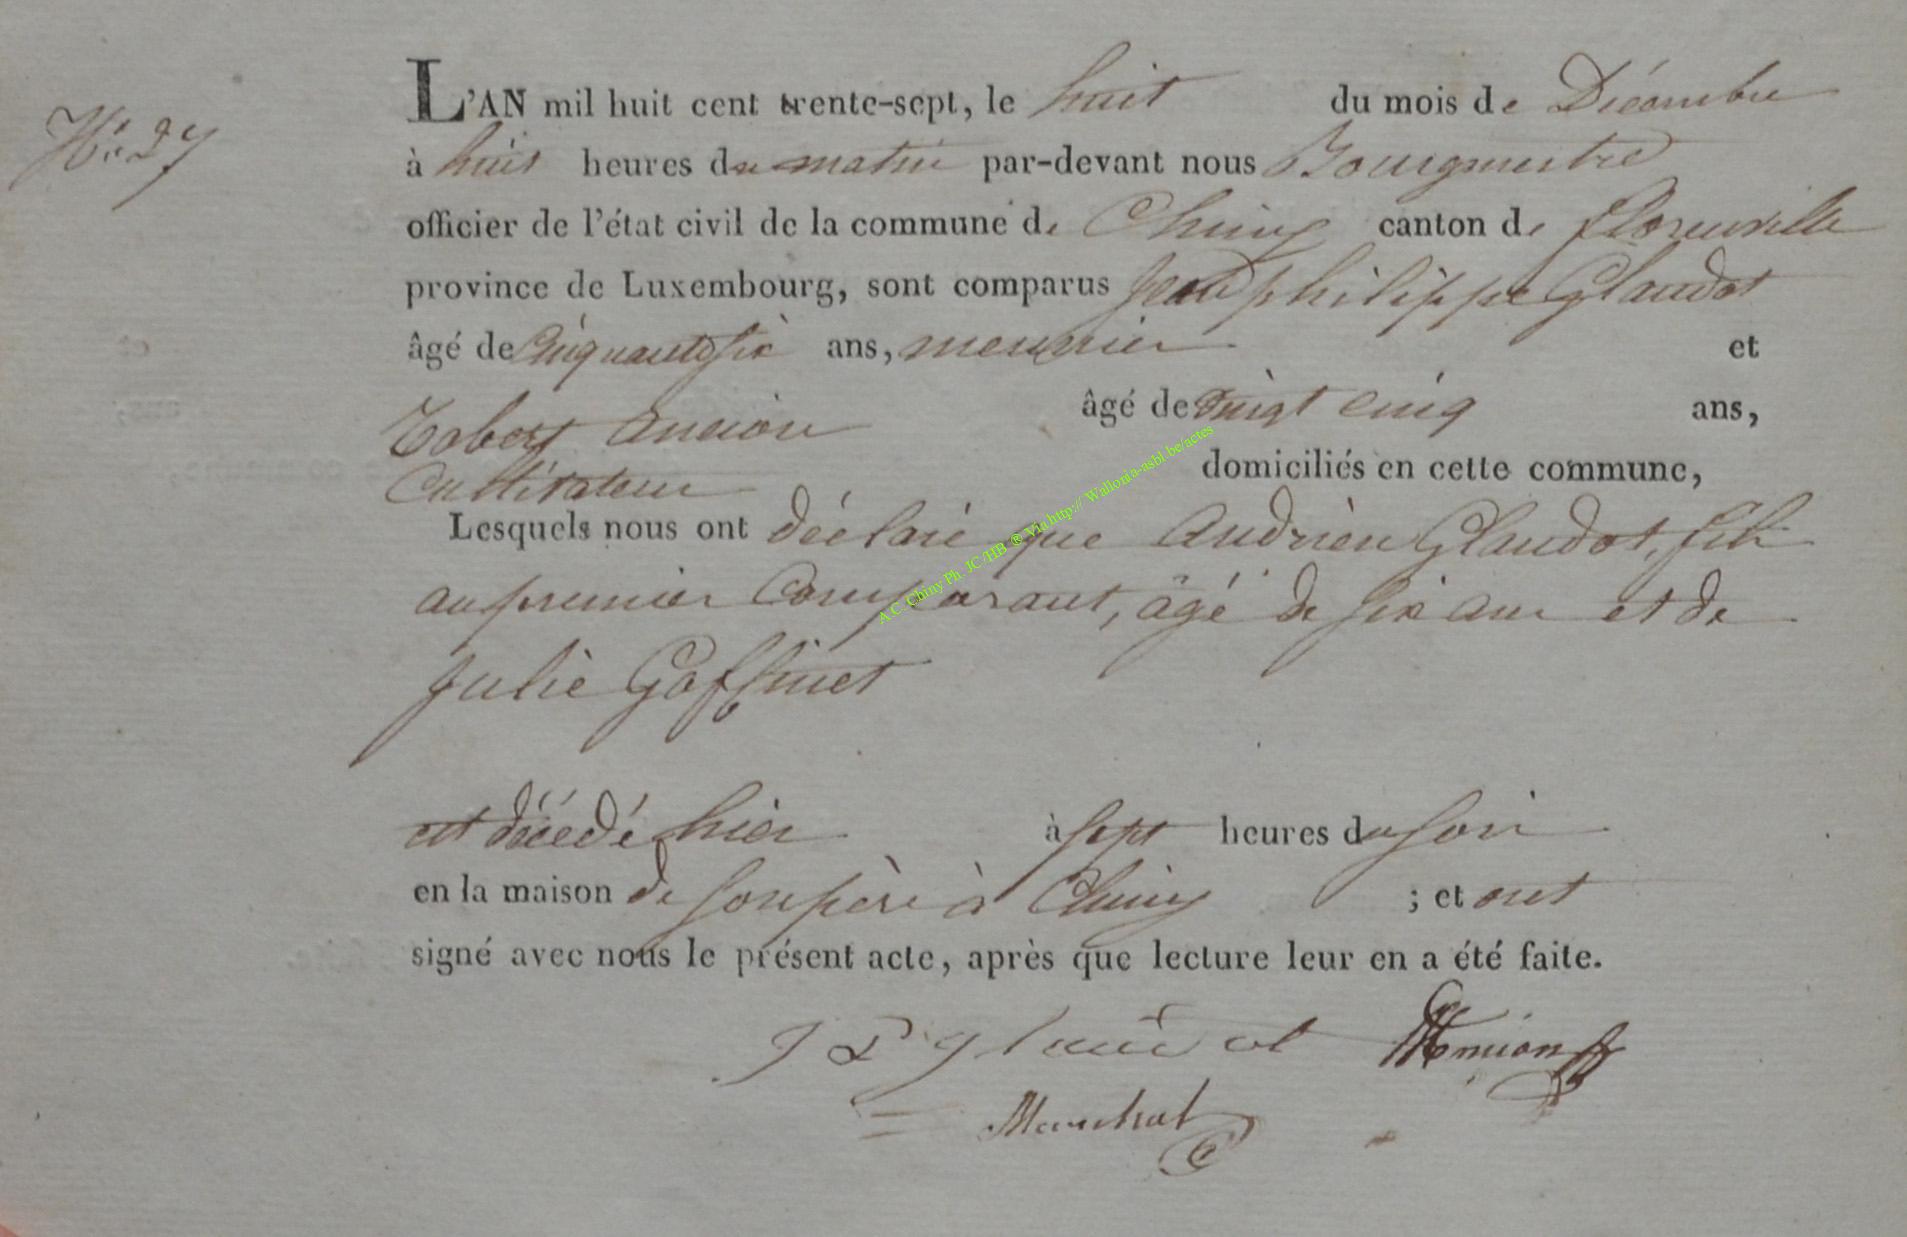 N.° 27
L'AN mil huit cent trente-sept, le huit du mois de Décembre
à huit heures du matin par-devant nous Bourgmestre
officier de l'état civil de la commune de Chiny canton de florenville
province de Luxembourg, sont comparus Jean philippe Glaudot
âgé de Cinquante six ans, meunier et
Ancion âgé de vingt cinq ans,
Cultivateur domiciliés en cette commune,
Lesquels nous ont déclaré que Andrien Glaudot, fils
au premier Comparant, âgé de six ans et de
Julie Goffinet
est décédé hier à sept heures du soir
en la maison de son père à Chiny ; et ont
signé avec nous le présent acte, après que lecture leur en a été faite.
J P glaudot
A.C. Chiny Ph. JC /HB ® Via http:// Wallonia-asbl.be/actes